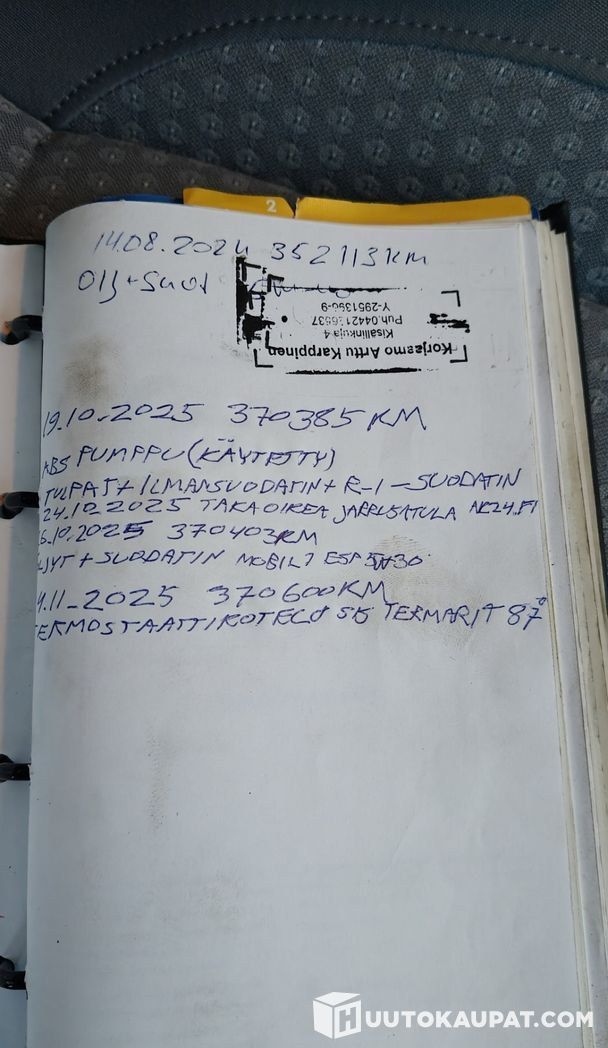 2
14.08.2024 352113km
Olj+Suod
Korjaamo Arttu Karppinen
Kisallinkuja 4
Puh.0442126537
Y-2951396-9
19.10.2025 370385KM
ABS PUMPPU (KÄYTETTY)
TULPAT + ILMANSUODATIN + R-I-SUODATIN
24.10.2025 TAKAOIKEA JARRUSATULA
6.10.2025 370403KM
LJYT + SUODATIN MOBIL 1 ESP 5W30
4.11.2025 370600KM
TERMOSTAATTIKOTELO SIS TERMARIT 87°
HUUTOKAUPAT.COM